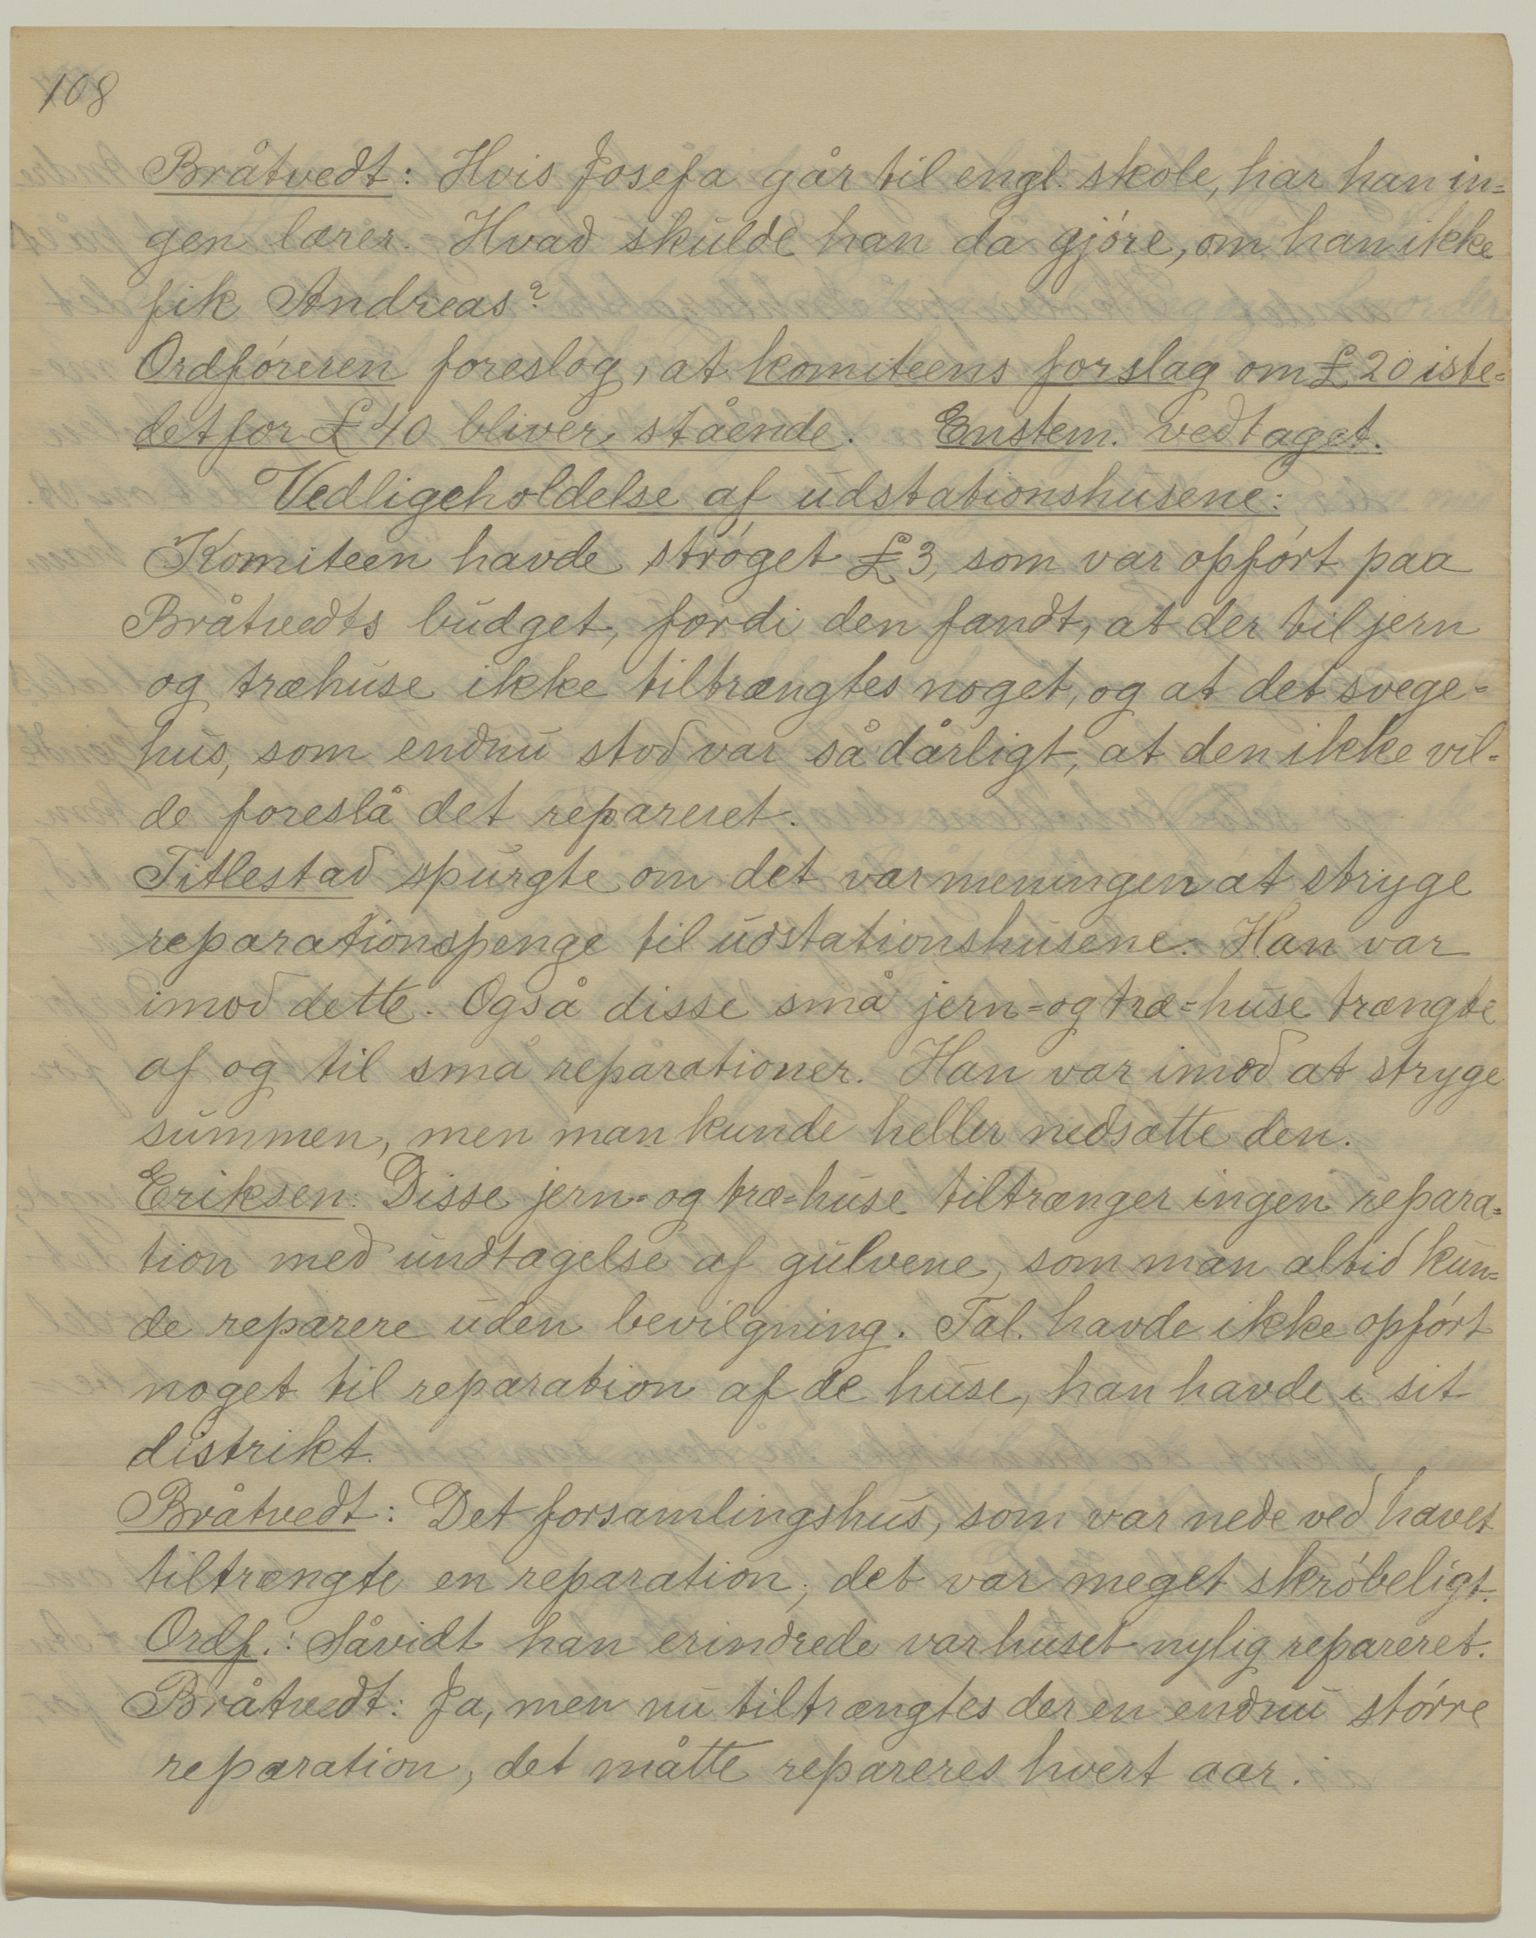 108
Bråtvedt: Hvis Josefa går til engl. skole, har han in=
gen lærer. Hvad skulde han da gjóre, om han ikke
fik Andreas?
Ordfóreren foreslog, at komiteens forslag om £20 iste=
det for £40 bliver stående. Enstem. vedtaget.
Vedligeholdelse af udstationshusene:
Komiteen havde stróget £3, som var opfórt paa
Bråtvedts budget, fordi den fandt, at der til jern
og træhuse ikke tiltrængtes noget, og at det svege=
hus, som endnu stod var så dårligt, at den ikke vil=
de foreslå det repareret.
Titlestad spurgte om det var meningen at stryge
reparationspenge til udstationshusene. Han var
imod dette. Også disse små jern=og træ=huse trængte
af og til små reparationer. Han var imod at stryge
summen, men man kunde heller nedsætte den.
Eriksen: Disse jern=og træ=huse tiltrænger ingen repara=
tion med undtagelse af gulvene, som man altid kun=
de reparere uden bevilgning. Tal. havde ikke opfórt
noget til reparation af de huse, han havde i sit
distrikt.
Bråtvedt: Det forsamlingshus, som var nede ved havet
tiltrængte en reparation; det var meget skróbeligt.
Ordf.: Såvidt han erindrede var huset nylig repareret.
Bråtvedt: Ja, men nu tiltrængtes der en endnu stórre
reparation, det måtte repareres hvert aar.